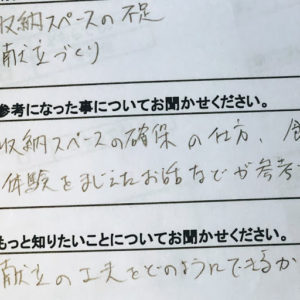 収納スペースの不足
献立づくり
参考になった事についてお聞かせください。
収納スペースの確保の仕方、
体験をまじえたお話などが参考
もっと知りたいことについてお聞かせください。
献立の工夫をどのようにできるか